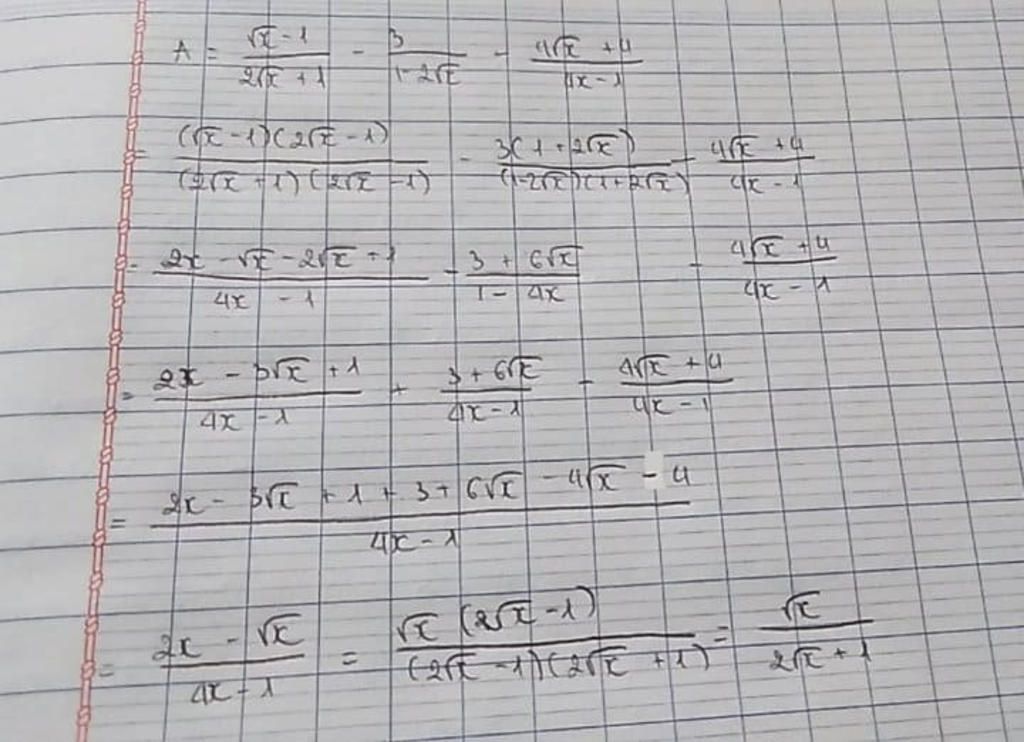 A = \frac{\sqrt{x} - 1}{2\sqrt{x} + 1} - \frac{3}{1 - 2\sqrt{x}} - \frac{4\sqrt{x} + 4}{4x - 1}
= \frac{(\sqrt{x} - 1)(2\sqrt{x} - 1)}{(2\sqrt{x} + 1)(2\sqrt{x} - 1)} - \frac{3(1 + 2\sqrt{x})}{(1 - 2\sqrt{x})(1 + 2\sqrt{x})} - \frac{4\sqrt{x} + 4}{4x - 1}
= \frac{2x - \sqrt{x} - 2\sqrt{x} + 1}{4x - 1} - \frac{3 + 6\sqrt{x}}{1 - 4x} - \frac{4\sqrt{x} + 4}{4x - 1}
= \frac{2x - 3\sqrt{x} + 1}{4x - 1} + \frac{3 + 6\sqrt{x}}{4x - 1} - \frac{4\sqrt{x} + 4}{4x - 1}
= \frac{2x - 3\sqrt{x} + 1 + 3 + 6\sqrt{x} - 4\sqrt{x} - 4}{4x - 1}
= \frac{2x - \sqrt{x}}{4x - 1} = \frac{\sqrt{x}(2\sqrt{x} - 1)}{(2\sqrt{x} - 1)(2\sqrt{x} + 1)} = \frac{\sqrt{x}}{2\sqrt{x} + 1}